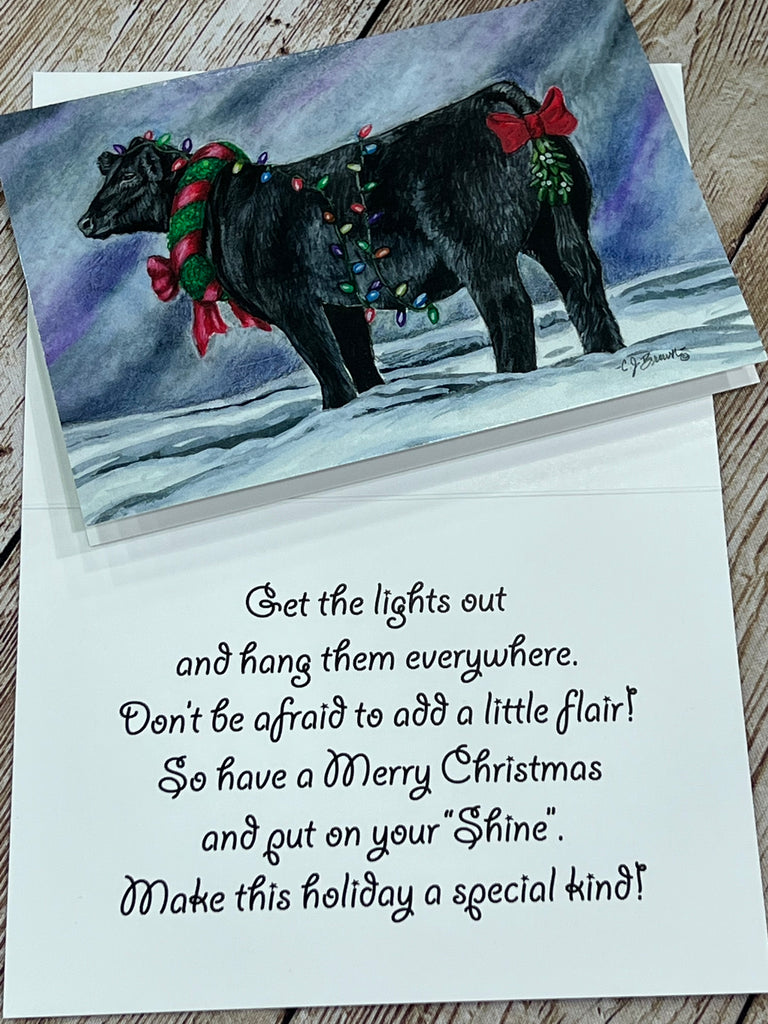 C J Brown
Get the lights out
and hang them everywhere.
Don't be afraid to add a little flair!
So have a Merry Christmas
and put on your "Shine".
Make this holiday a special kind!